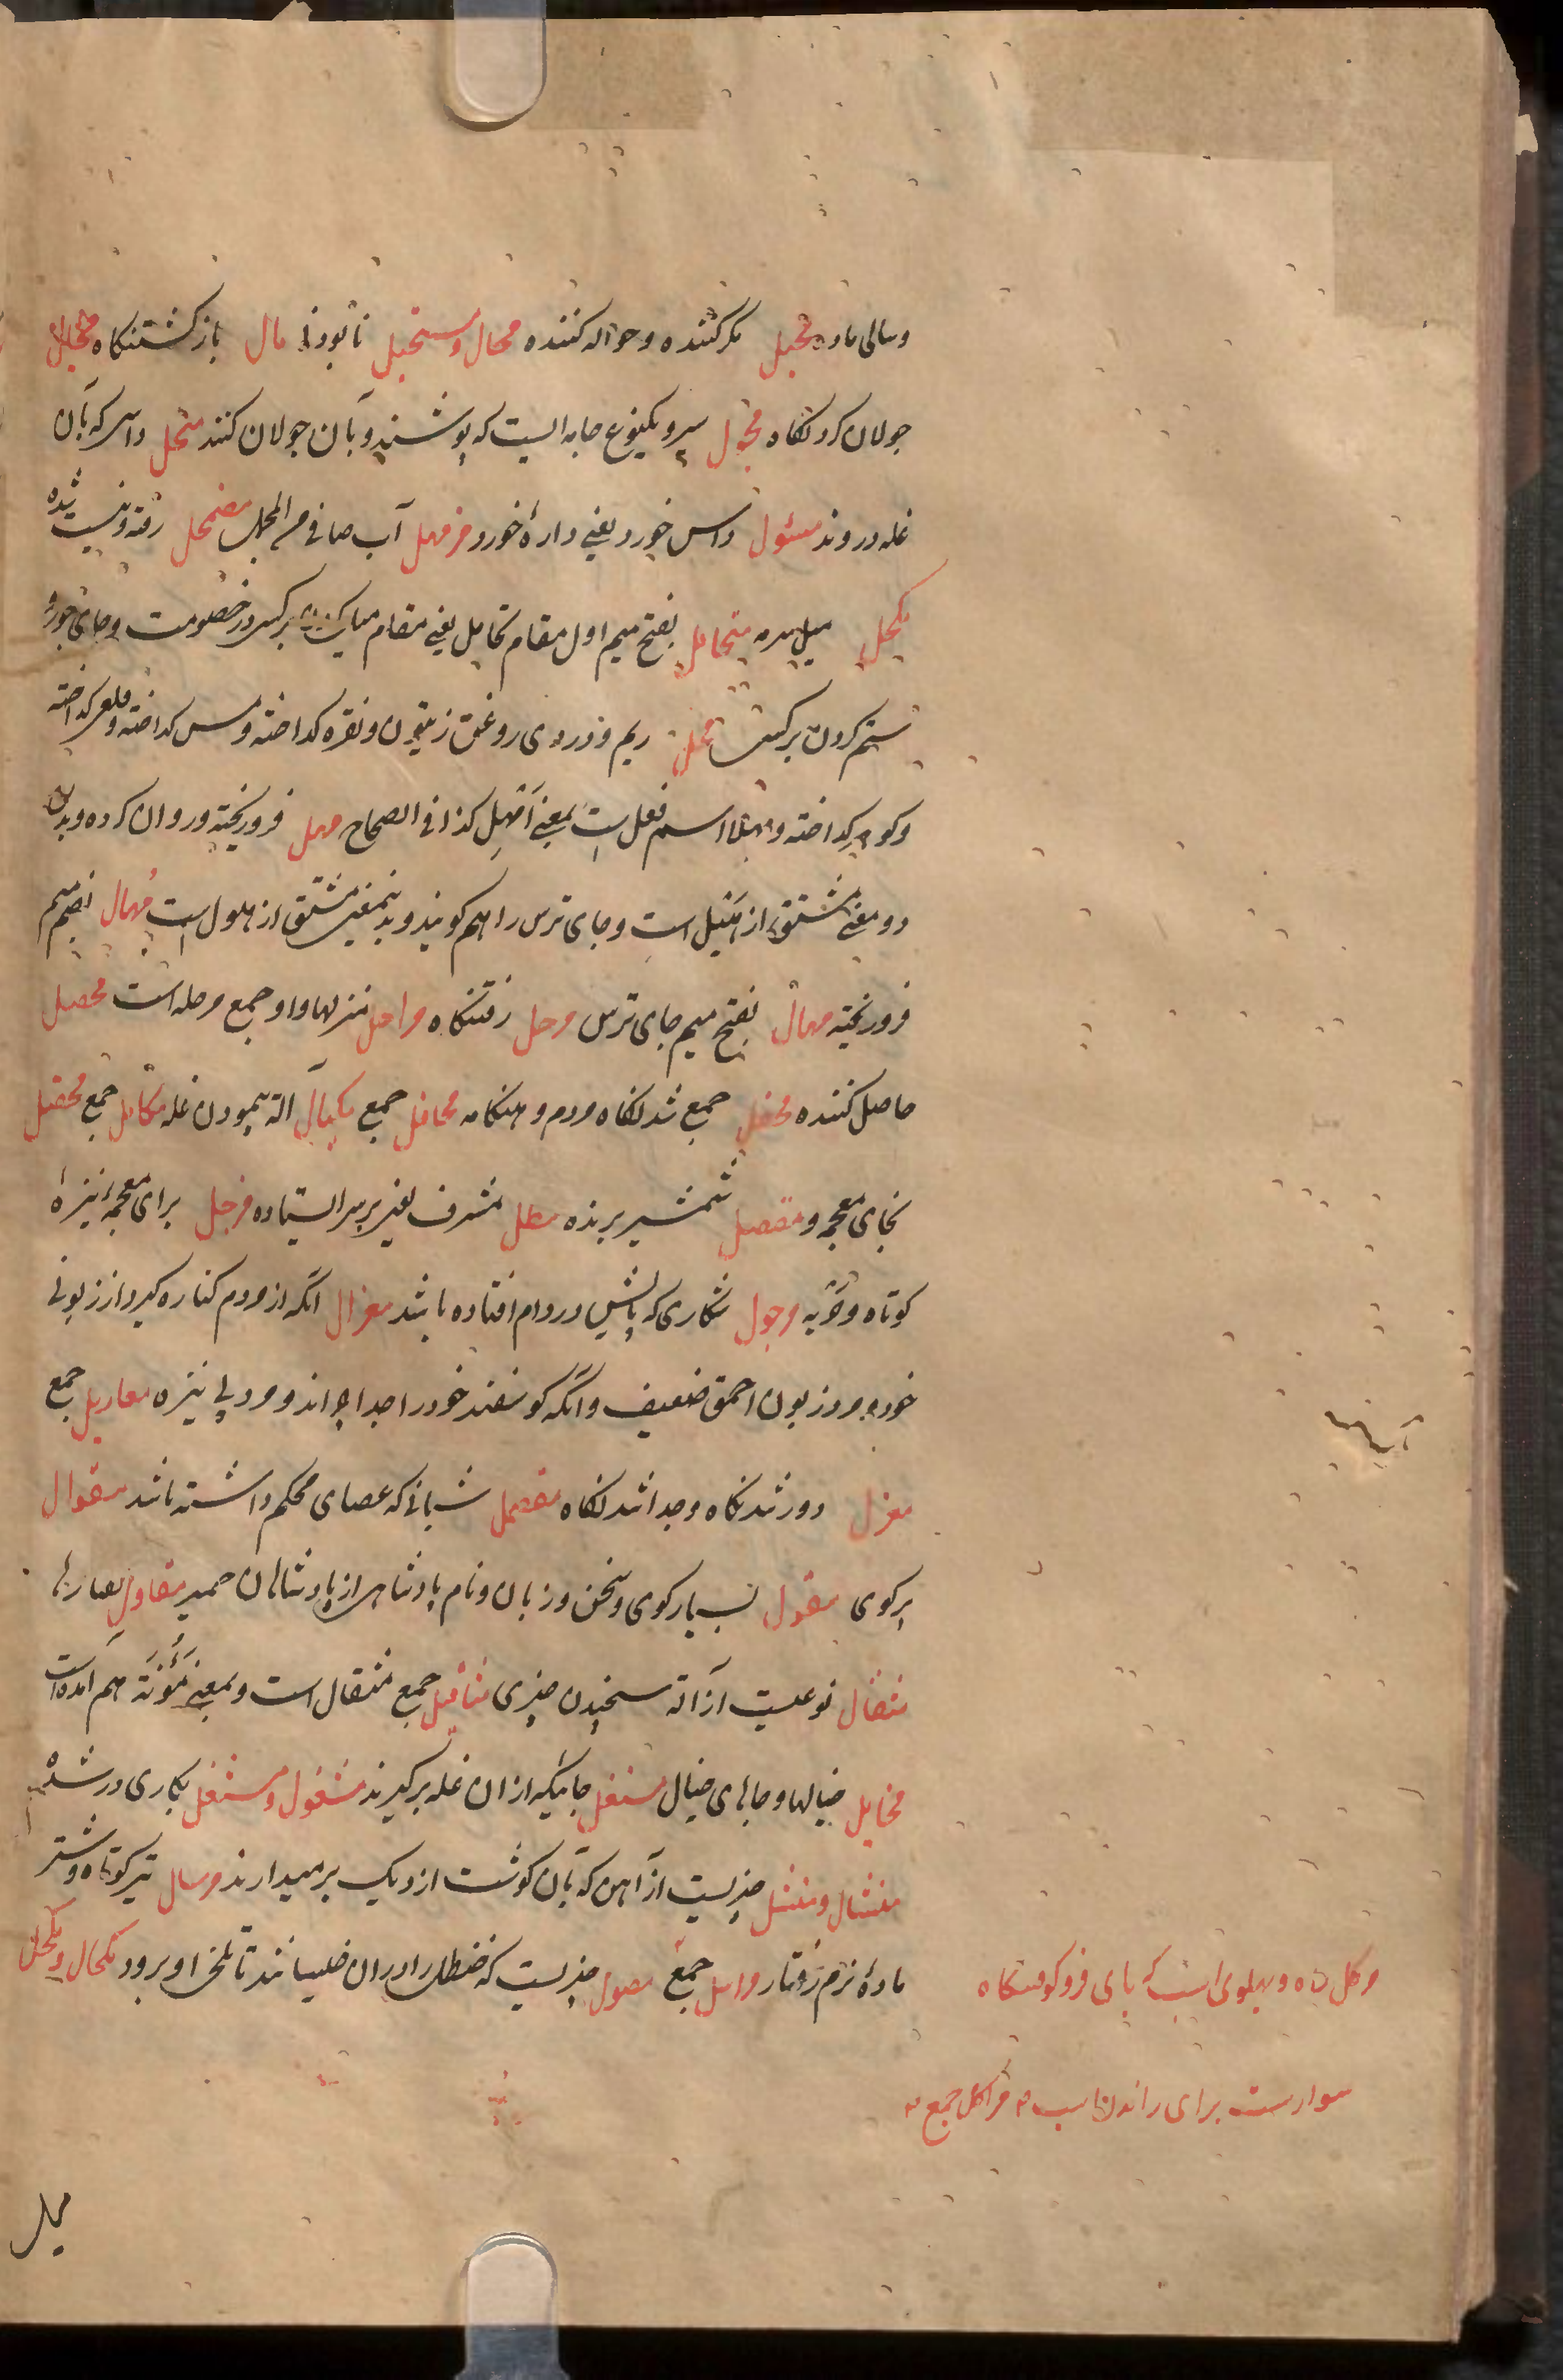 وسالی ماده محیل مکر کننده و حواله کننده محال و مستحیل نابودنی مال بازگشتنگاه مجال
جولان کردنگاه مجول سپر و یکنوع جامه ایست که پوشند و بآن جولان کنند منجل داسی که بآن
غله دروند مسئول داس خورد یعنی دارۀ خورد مزمهل آب صافی مضمحل رفته و نیست شده
مکحل میل سرمه متحامل بفتح میم اول مقام تحامل یعنی مقام برکسی در خصومت و جای جور و
ستم کردن بر کسی مهل ریم و دردی روغن زیتون و نقره گداخته و مس گداخته و قلعی گداخته
و کوه گداخته و مهلا اسم فعل است بمعنی امهل کذا فی الصحاح مهل فروریخته و روان کرده و بدین
دو معنی مشتق از هیل است و جای ترس را هم گویند و بدینمعنی مشتق از هول است مُهال بضم میم
فروریخته مهال بفتح میم جای ترس مرحل رفتنگاه مراحل منزلها و او جمع مرحله است محصل
حاصل کننده محفل جمع شدنگاه مردم و هنگامه محافل جمع مکیال آلۀ پیمودن غله مکائل جمع
بخای معجمه و مقصل شمشیر برنده مطل مشرف یعنی بر سر ایستاده مزجل برای معجمه نیزۀ
کوتاه و حربه مرجول شکاری که پایش در دام افتاده باشد معزال آنکه از مردم کناره گیرد از زبونی
خود و مرد زبون احمق ضعیف و آنکه گوسفند خود را جدا چراند و مرد بی نیزه معازیل جمع
معزل دور شدنگاه و جدا شدنگاه مقصمل شبانی که عصای محکم داشته باشد مقوال
پرگوی مقول بسیار گوی و سخن و زبان و نام پادشاهی از پادشاهان حمیر مقاول
مثقال نوعیست از آلۀ سنجیدن چیزی مثاقیل جمع مثقال است و بمعنی مَؤُنَة هم آمده است
مخایل خیالها و جاهای خیال مستغل جائیکه از آن غله برگیرند مشغول و مشتغل بکاری در شده
منشال و منشل چیزیست از آهن که بآن گوشت از دیگ برمیدارند مرسال تیر کوتاه و شتر
مادۀ نرم رفتار مراسل جمع مصول چیزیست که حنظل را در آن خیسانند تا تلخی او برود مکحال و مکحل
مرکل راه و پهلوی اسب که پای فروکوفتنگاه
سوارست برای راندن اسب ۳ مراکل جمع ۳